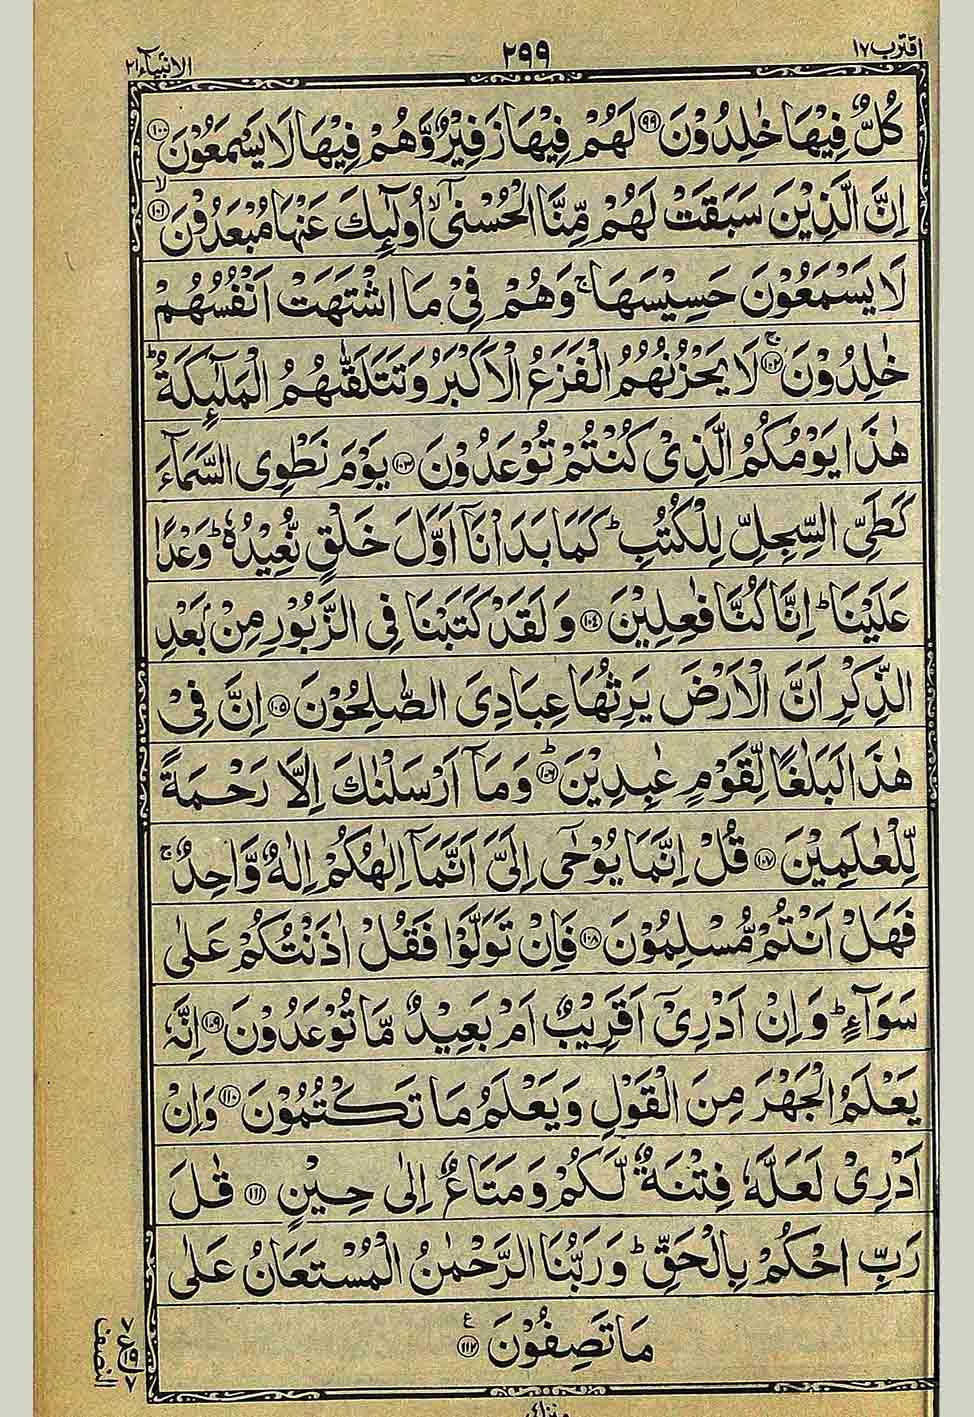 اقترب ١٧
٢٩٩
الانبیآء ٢١
كُلٌّ فِیْهَا خٰلِدُوْنَ ﴿٩٩﴾ لَهُمْ فِیْهَا زَفِیْرٌ وَّهُمْ فِیْهَا لَا یَسْمَعُوْنَ ﴿١٠٠﴾
اِنَّ الَّذِیْنَ سَبَقَتْ لَهُمْ مِّنَّا الْحُسْنٰۤیۙ اُولٰٓىِٕكَ عَنْهَا مُبْعَدُوْنَۙ ﴿١٠١﴾
لَا یَسْمَعُوْنَ حَسِیْسَهَاۚ وَهُمْ فِیْ مَا اشْتَهَتْ اَنْفُسُهُمْ
خٰلِدُوْنَۚ ﴿١٠٢﴾ لَا یَحْزُنُهُمُ الْفَزَعُ الْاَكْبَرُ وَتَتَلَقّٰىهُمُ الْمَلٰٓىِٕكَةُؕ
هٰذَا یَوْمُكُمُ الَّذِیْ كُنْتُمْ تُوْعَدُوْنَ ﴿١٠٣﴾ یَوْمَ نَطْوِی السَّمَآءَ
كَطَیِّ السِّجِلِّ لِلْكُتُبِؕ كَمَا بَدَاْنَاۤ اَوَّلَ خَلْقٍ نُّعِیْدُهٗؕ وَعْدًا
عَلَیْنَاؕ اِنَّا كُنَّا فٰعِلِیْنَ ﴿١٠٤﴾ وَلَقَدْ كَتَبْنَا فِی الزَّبُوْرِ مِنْ بَعْدِ
الذِّكْرِ اَنَّ الْاَرْضَ یَرِثُهَا عِبَادِیَ الصّٰلِحُوْنَ ﴿١٠٥﴾ اِنَّ فِیْ
هٰذَا لَبَلٰغًا لِّقَوْمٍ عٰبِدِیْنَؕ ﴿١٠٦﴾ وَمَاۤ اَرْسَلْنٰكَ اِلَّا رَحْمَةً
لِّلْعٰلَمِیْنَ ﴿١٠٧﴾ قُلْ اِنَّمَا یُوْحٰۤی اِلَیَّ اَنَّمَاۤ اِلٰهُكُمْ اِلٰهٌ وَّاحِدٌۚ
فَهَلْ اَنْتُمْ مُّسْلِمُوْنَ ﴿١٠٨﴾ فَاِنْ تَوَلَّوْا فَقُلْ اٰذَنْتُكُمْ عَلٰی
سَوَآءٍؕ وَاِنْ اَدْرِیْۤ اَقَرِیْبٌ اَمْ بَعِیْدٌ مَّا تُوْعَدُوْنَ ﴿١٠٩﴾ اِنَّهٗ
یَعْلَمُ الْجَهْرَ مِنَ الْقَوْلِ وَیَعْلَمُ مَا تَكْتُمُوْنَ ﴿١١٠﴾ وَاِنْ
اَدْرِیْ لَعَلَّهٗ فِتْنَةٌ لَّكُمْ وَمَتَاعٌ اِلٰی حِیْنٍ ﴿١١١﴾ قٰلَ
رَبِّ احْكُمْ بِالْحَقِّؕ وَرَبُّنَا الرَّحْمٰنُ الْمُسْتَعَانُ عَلٰی
مَا تَصِفُوْنَ ﴿١١٢﴾ ع
النصف
٧ ع ١٩ ٧
منزل٤